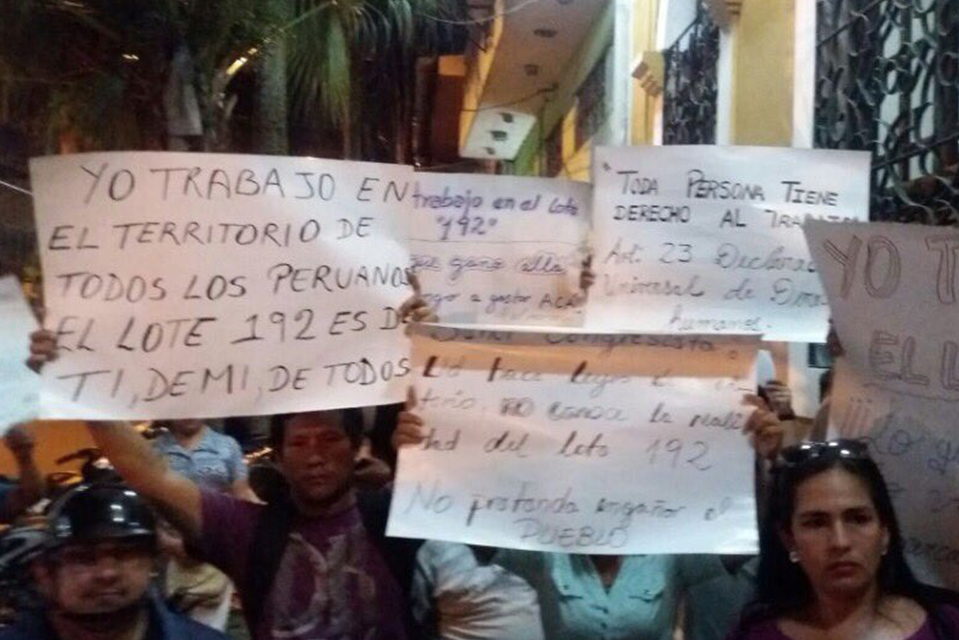 YO TRABAJO EN
EL TERRITORIO DE
TODOS LOS PERUANOS
EL LOTE 192 ES DE
TI, DE MI, DE TODOS
trabajo en el lote
"192"
que gano alla
a gastar ACA
"TODA PERSONA TIENE
DERECHO AL TRABAJO
Art. 23 Declara
Universal de
humanos.
Congresista.
Ud hace leyes
NO conoce la reali
dad del lote 192
No pretenda engañar al
PUEBLO
YO T
EL L
¡¡¡Lo